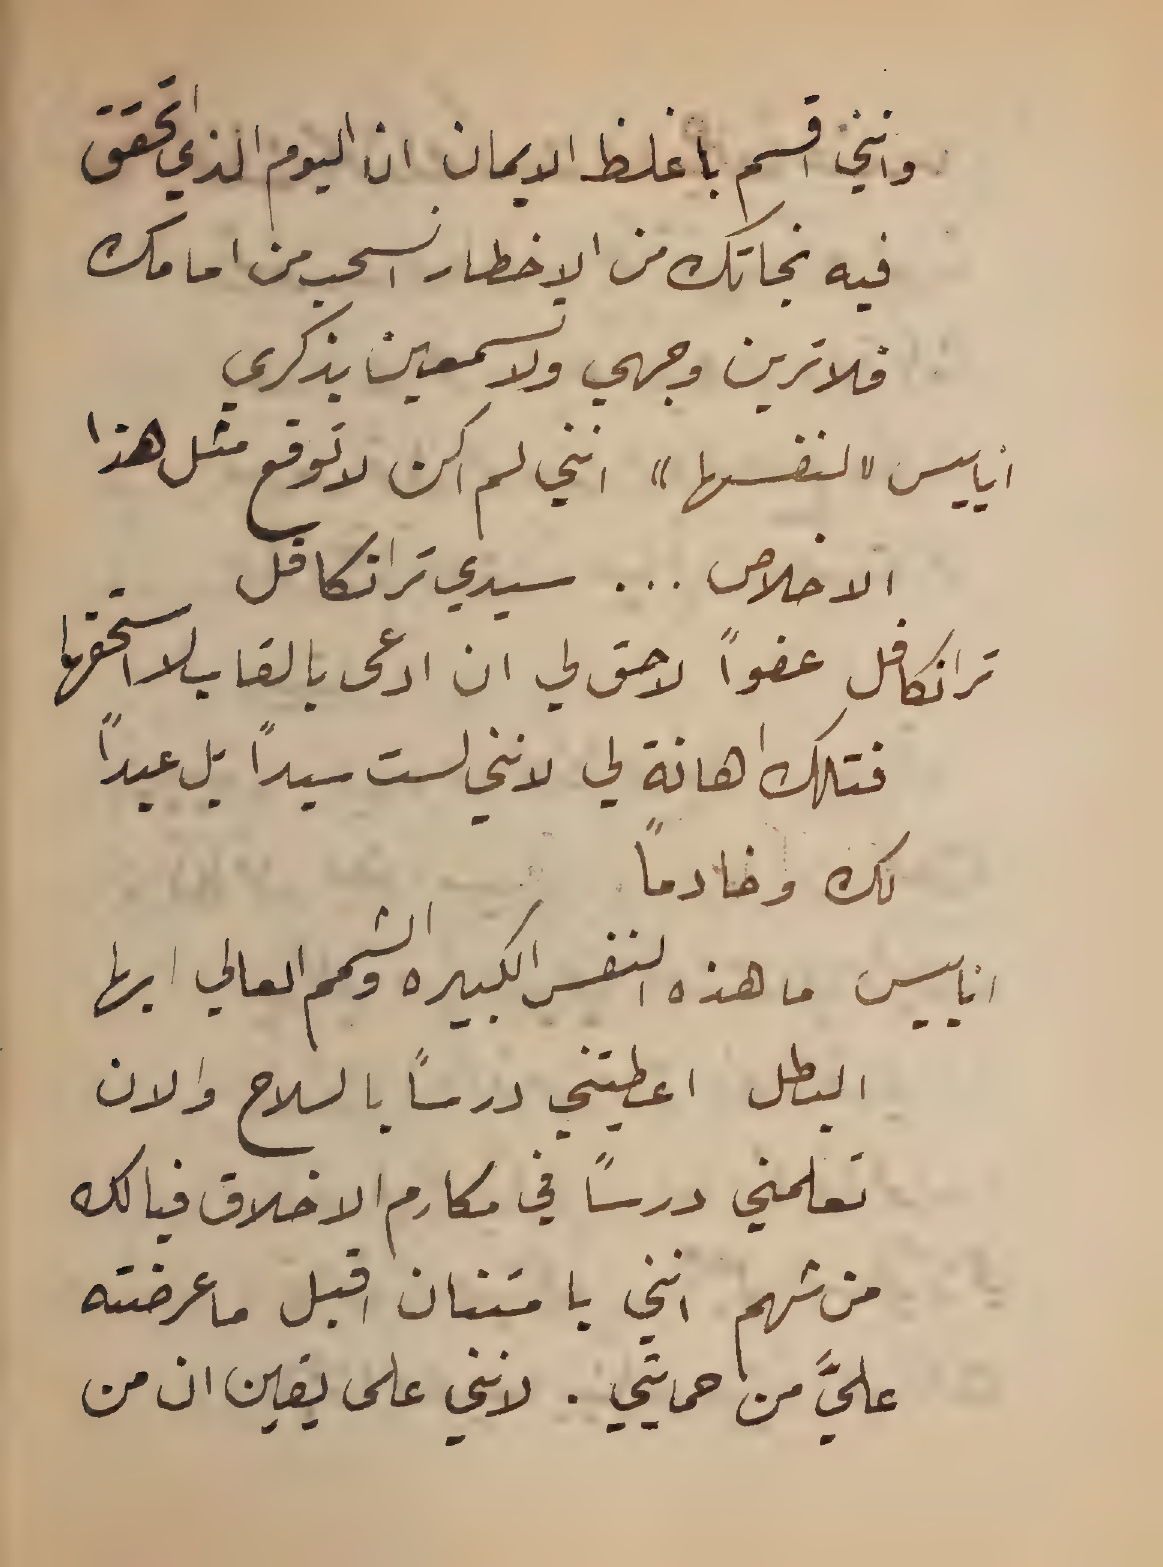 وانني اقسم باغلظ الايمان ان اليوم الذي اتحقق
فيه نجاتك من الاخطار انسحب من امامك
فلا ترين وجهي ولا تسمعين بذكري
اناييس «لنفسها» انني لم اكن لاتوقع مثل هذا
الاخلاص ... سيدي ترانكافل
ترانكافل عفواً لا حق لي ان ادعى بالقاب لا استحقها
فتلك اهانة لي لانني لست سيداً بل عبداً
لك وخادماً
اناييس ما هذه النفس الكبيره والشمم العالي ايها
البطل اعطيتني درساً بالسلاح والان
تعلمني درساً في مكارم الاخلاق فيالك
من شهم انني بامتنان اقبل ما عرضته
عليَّ من حمايتي . لانني على يقين ان من